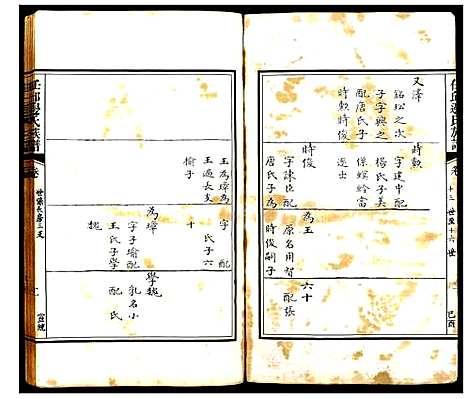 又濤
銘松之次
子字興之
配唐氏子
時勲時俊
時勲
字建中配
楊氏子美
保螟蛉富
逐出
時俊
字陳臣配
唐氏子為
為玉
原名用智
時俊嗣子
六十
配張
十三世至十六世
己酉
王為璋為
王過長支
榆子
字配
氏子六
十
為璋
字子瑜配
王氏子學
魏
學魏
乳名小
配氏
任邱邊氏族譜
卷
世系長房三支
宣統